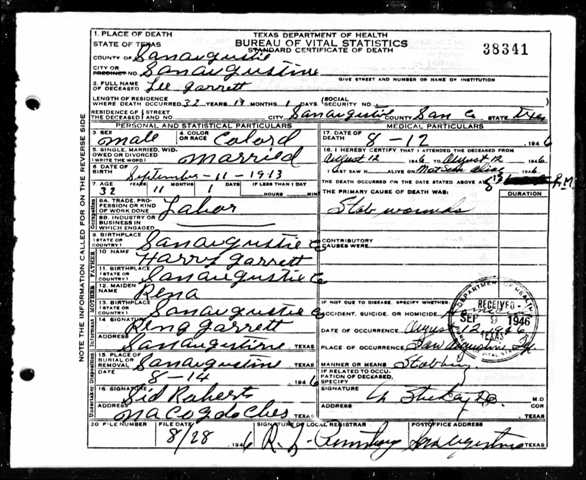 1. PLACE OF DEATH
STATE OF TEXAS
TEXAS DEPARTMENT OF HEALTH
BUREAU OF VITAL STATISTICS
STANDARD CERTIFICATE OF DEATH
38341
COUNTY OF San augustine
CITY OR PRECINCT NO. San augustine
GIVE STREET AND NUMBER OR NAME BY INSTITUTION
2. FULL NAME OF DECEASED Lee Garrett
LENGTH OF RESIDENCE WHERE DEATH OCCURRED 32 YEARS MONTHS 1 DAYS (SOCIAL SECURITY NO.)
RESIDENCE OF THE DECEASED STREET AND NO. CITY San augustine COUNTY San STATE Texas
PERSONAL AND STATISTICAL PARTICULARS
MEDICAL PARTICULARS
3. SEX male
4. COLOR OR RACE Colord
17. DATE OF DEATH 8-12 1946
5. SINGLE, MARRIED, WIDOWED OR DIVORCED (WRITE THE WORD) married
18. I HEREBY CERTIFY THAT I ATTENDED THE DECEASED FROM
august 12 1946 TO august 12 1946
6. DATE OF BIRTH September-11-1913
I LAST SAW H ALIVE ON Not seen alive 194
7. AGE YEARS MONTHS DAYS IF LESS THAN 1 DAY
32 11 1 HOURS MIN
THE DEATH OCCURRED ON THE DATE STATED ABOVE AT P.M.
THE PRIMARY CAUSE OF DEATH WAS:
DURATION
8A. TRADE, PROFESSION OR KIND OF WORK DONE Labor
Stab wounds
8B. INDUSTRY OR BUSINESS IN WHICH ENGAGED
9. BIRTHPLACE (STATE OR COUNTY) San augustie Co
CONTRIBUTORY CAUSES WERE:
10. NAME Harry Garrett
11. BIRTHPLACE (STATE OR COUNTY) San augustie Co
12. MAIDEN NAME Rena
13. BIRTHPLACE (STATE OR COUNTY) San augustie Co
IF NOT DUE TO DISEASE, SPECIFY WHETHER:
ACCIDENT, SUICIDE, OR HOMICIDE
14. SIGNATURE Rena Garrett
DATE OF OCCURRENCE August 12, 1946
ADDRESS San augustine TEXAS
PLACE OF OCCURRENCE San Augustine Tx.
15. PLACE OF BURIAL OR REMOVAL San augustine TEXAS
MANNER OR MEANS Stabbing
DATE 8-14 1946
IF RELATED TO OCCUPATION OF DECEASED, SPECIFY
16. SIGNATURE Sid Roberts
SIGNATURE M.D.
ADDRESS nacogdoches TEXAS
ADDRESS TEXAS
20. FILE NUMBER
FILE DATE 8/28 1946
SIGNATURE OF LOCAL REGISTRAR
POSTOFFICE ADDRESS San augustine TEXAS
DEPARTMENT OF HEALTH
RECEIVED
SEP 1946
TEXAS
VITAL STATISTICS
NOTE THE INFORMATION CALLED FOR ON THE REVERSE SIDE
Occupation
FATHER
MOTHER
Informant
Undertaker